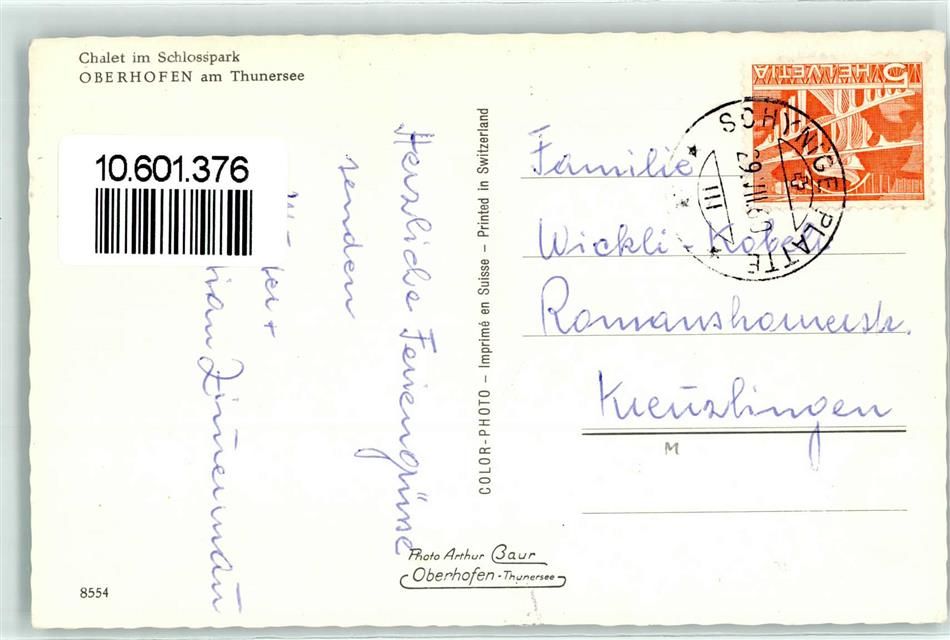 Chalet im Schlosspark
OBERHOFEN am Thunersee
10.601.376
Herzliche Feriengrüsse
senden
Familie
Wickli-Kobelt
Romanshornerstr.
Kreuzlingen
M
5 HELVETIA
SCHYNIGE PLATTE
29.VIII.60
III
COLOR-PHOTO – Imprimé en Suisse – Printed in Switzerland
Photo Arthur Baur
Oberhofen - Thunersee
8554